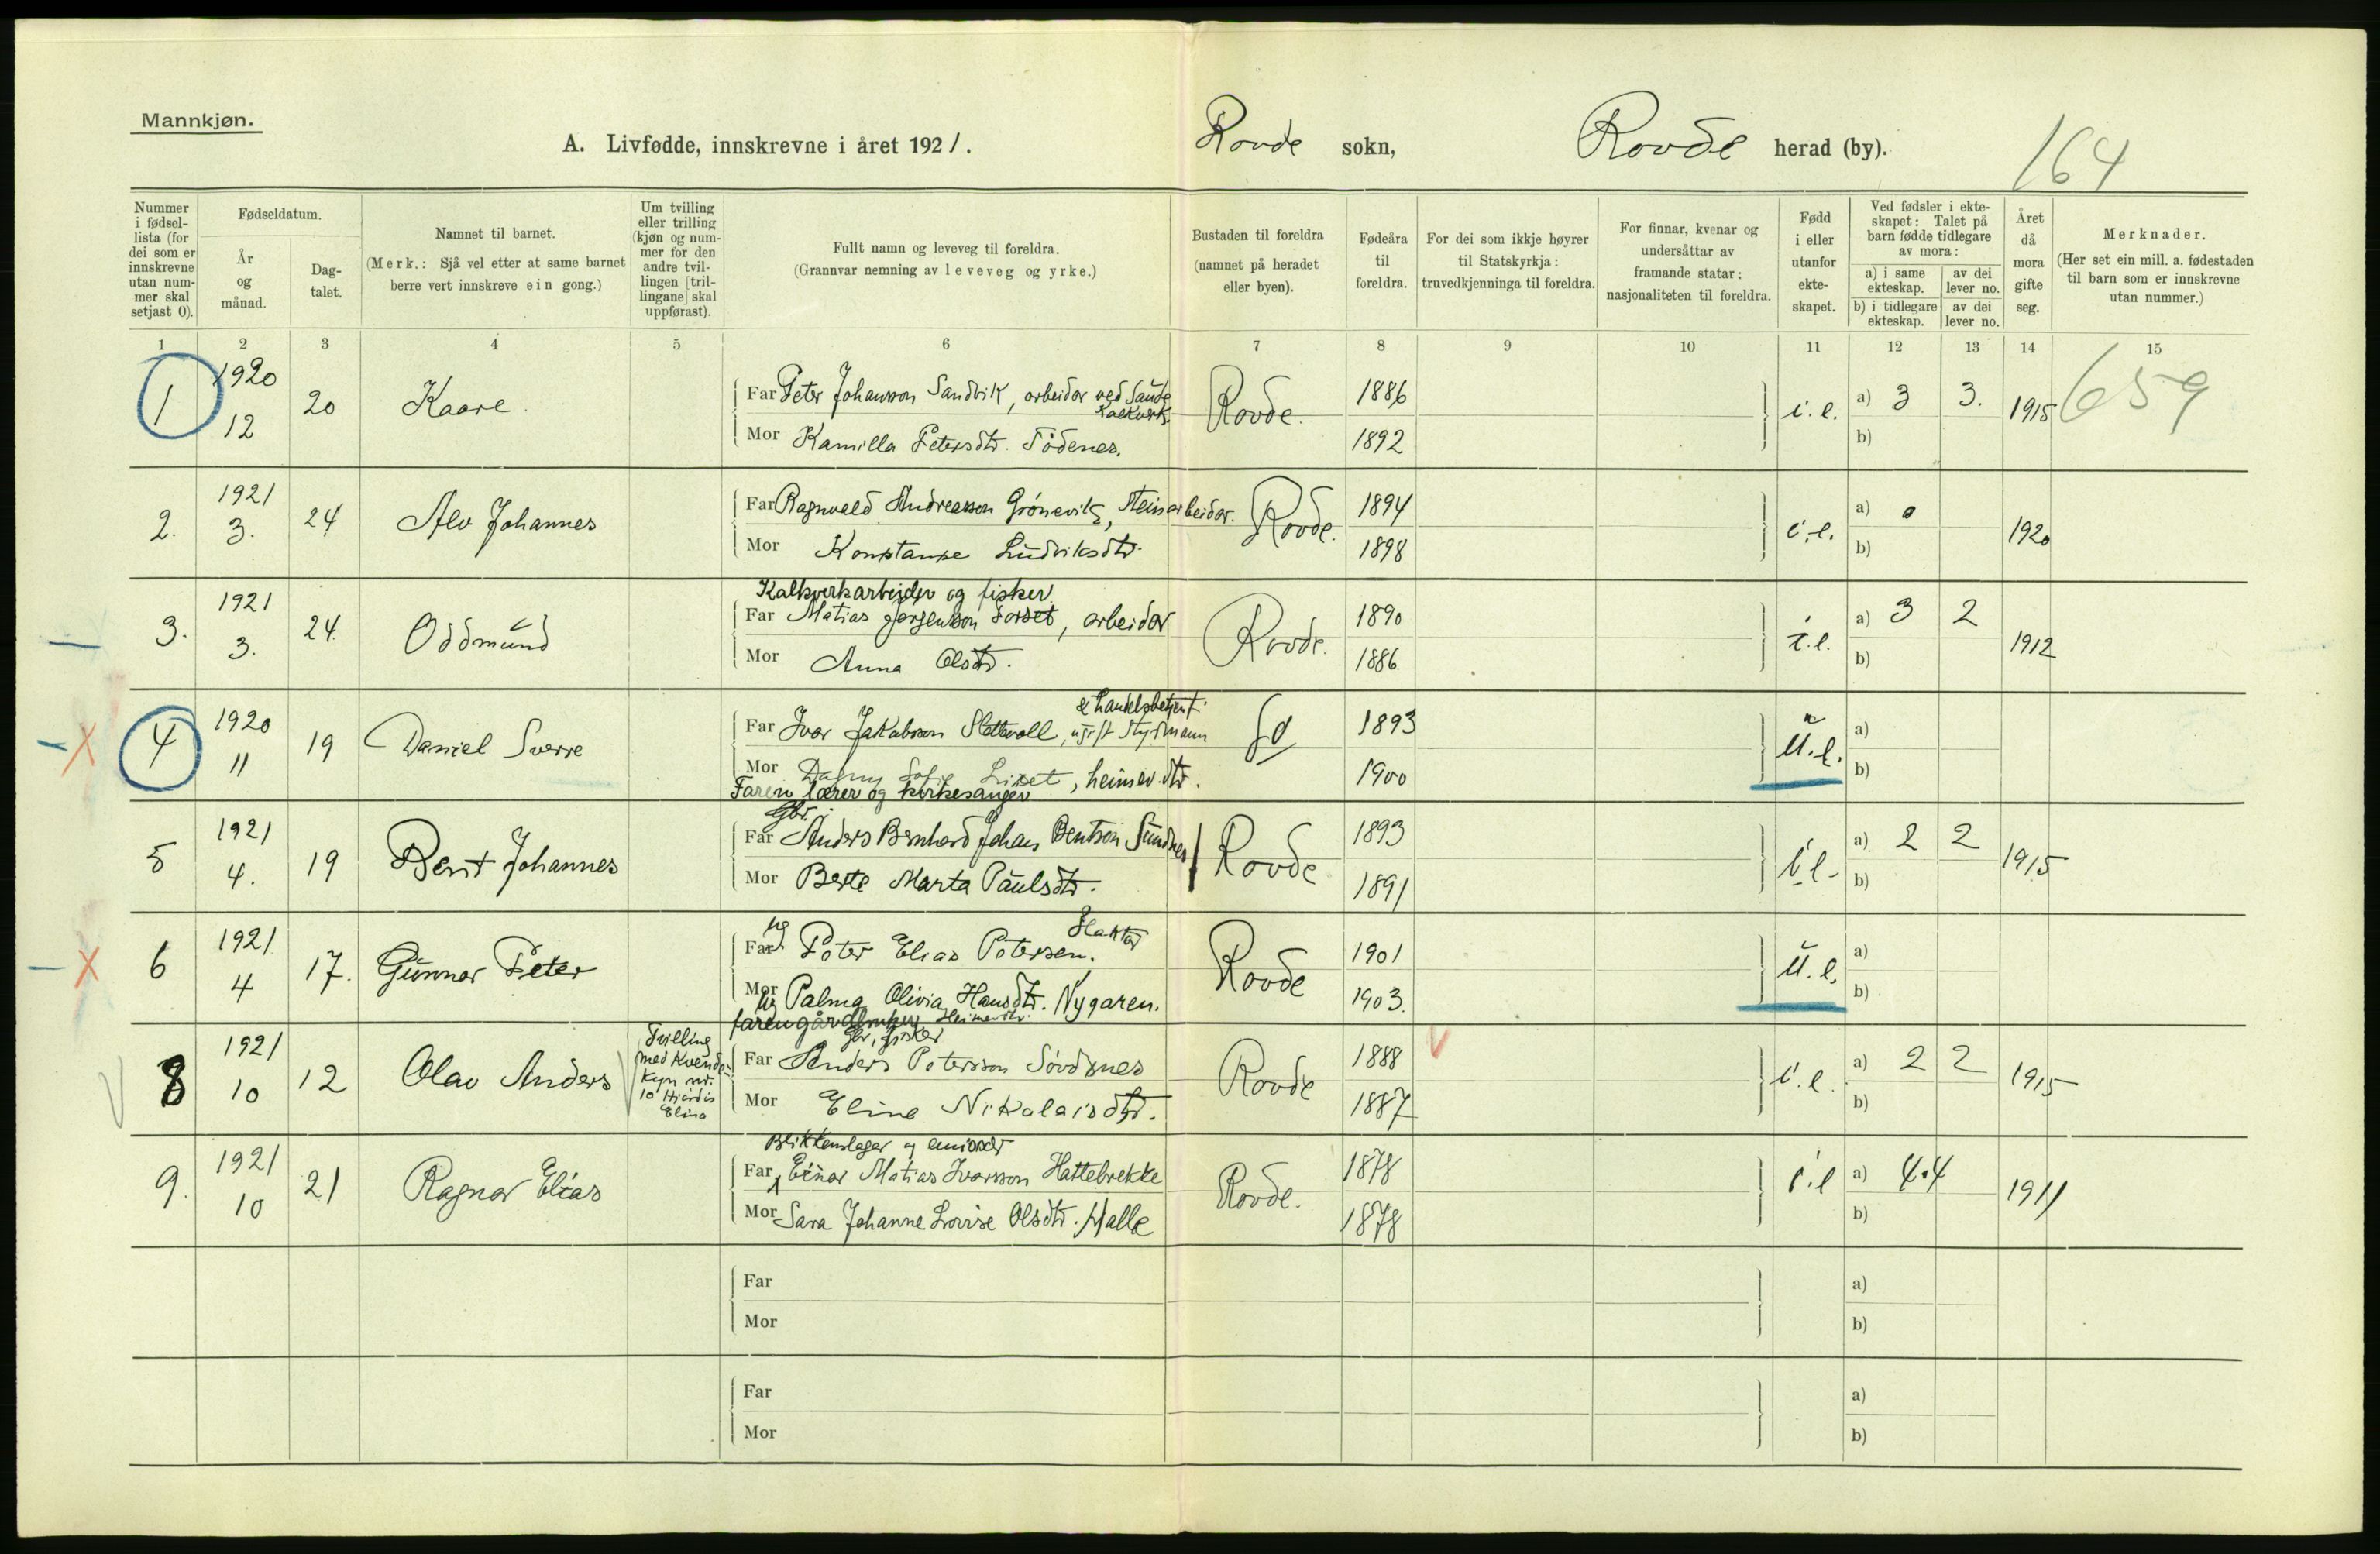 Mannkjøn.
A. Livfødde, innskrevne i året 1921.
Rovde sokn,
Rovde herad (by).
164
Nummer i fødsel-lista (for dei som er innskrevne utan num-mer skal setjast 0).
Fødseldatum.
År og månad.
Dag-talet.
Namnet til barnet.
(Merk.: Sjå vel etter at same barnet berre vert innskreve ein gong.)
Um tvilling eller trilling (kjøn og num-mer for den andre tvil-lingen [tril-lingane] skal uppførast).
Fullt namn og leveveg til foreldra.
(Grannvar nemning av leveveg og yrke.)
Bustaden til foreldra (namnet på heradet eller byen).
Fødeåra til foreldra.
For dei som ikkje høyrer til Statskyrkja: truvedkjenninga til foreldra.
For finnar, kvenar og undersåttar av framande statar: nasjonaliteten til foreldra.
Fødd i eller utanfor ekte-skapet.
Ved fødsler i ekte-skapet: Talet på barn fødde tidlegare av mora:
a) i same ekteskap.
av dei lever no.
b) i tidlegare ekteskap.
av dei lever no.
Året då mora gifte seg.
Merknader.
(Her set ein mill. a. fødestaden til barn som er innskrevne utan nummer.)
1 2 3 4 5 6 7 8 9 10 11 12 13 14 15
659
1 1920 12 20 Kaare.
Far Peter Johansson Sandvik, arbeidar ved Sande Kalkverk.
Mor Kamilla Petersdtr. Tödenes.
Rovde. 1886 1892 i.e. a) 3 3. b) 1915
2. 1921 3. 24 Alv Johannes
Far Ragnvald Andreasson Grönevik, Steinarbeidar.
Mor Konstanse Ludviksdtr.
Rovde. 1894 1898 i.e. a) 0 b) 1920
3. 1921 3. 24. Oddmund
Kalkverkarbeider og fisker
Far Matias Jørgensson Sorset, arbeidar
Mor Anna Olsdtr.
Rovde. 1890 1886. i.e. a) 3 2 b) 1912
4 1920 11 19 Daniel Sverre
& handelsbetjent.
Far Ivar Jakobsson Slettevoll, ugift Styrmann
Mor Dagny Sofie Liset, heimev. dtr.
1893 1900 u.e. a) b)
Faren lærer og kirkesanger
Gbr.
5 1921 4. 19 Bent Johannes
Far Anders Bernhard Johan Bentson Sundnes
Mor Berte Marta Paulsdtr.
Rovde 1893 1891 i.e. a) 2 2 b) 1915
6 1921 4 17. Gunnar Peter
Far ug Peter Elias Petersen. Slakter
Mor ug Palma Olivia Hansdtr. Nygaren.
Heimev. dtr.
Rovde 1901 1903. u.e. a) b)
faren gårdbruker
Gbr, fisker
8 1921 10 12 Olav Anders
Tvilling med Kvende-kyn nr. 10 Hjördis Elina
Far Anders Petersson Sövdsnes
Mor Eline Nikolaisdtr.
Rovde 1888 1887 i.e. a) 2 2 b) 1915
Blikkenslager og emissær
9. 1921 10 21 Ragnar Elias
Far Einar Matias Ivarsson Hattebrekke
Mor Sara Johanne Lovise Olsdtr. Halle
Rovde. 1878 1878 i.e a) 4.4 b) 1911
Far a)
Mor b)
Far a)
Mor b)